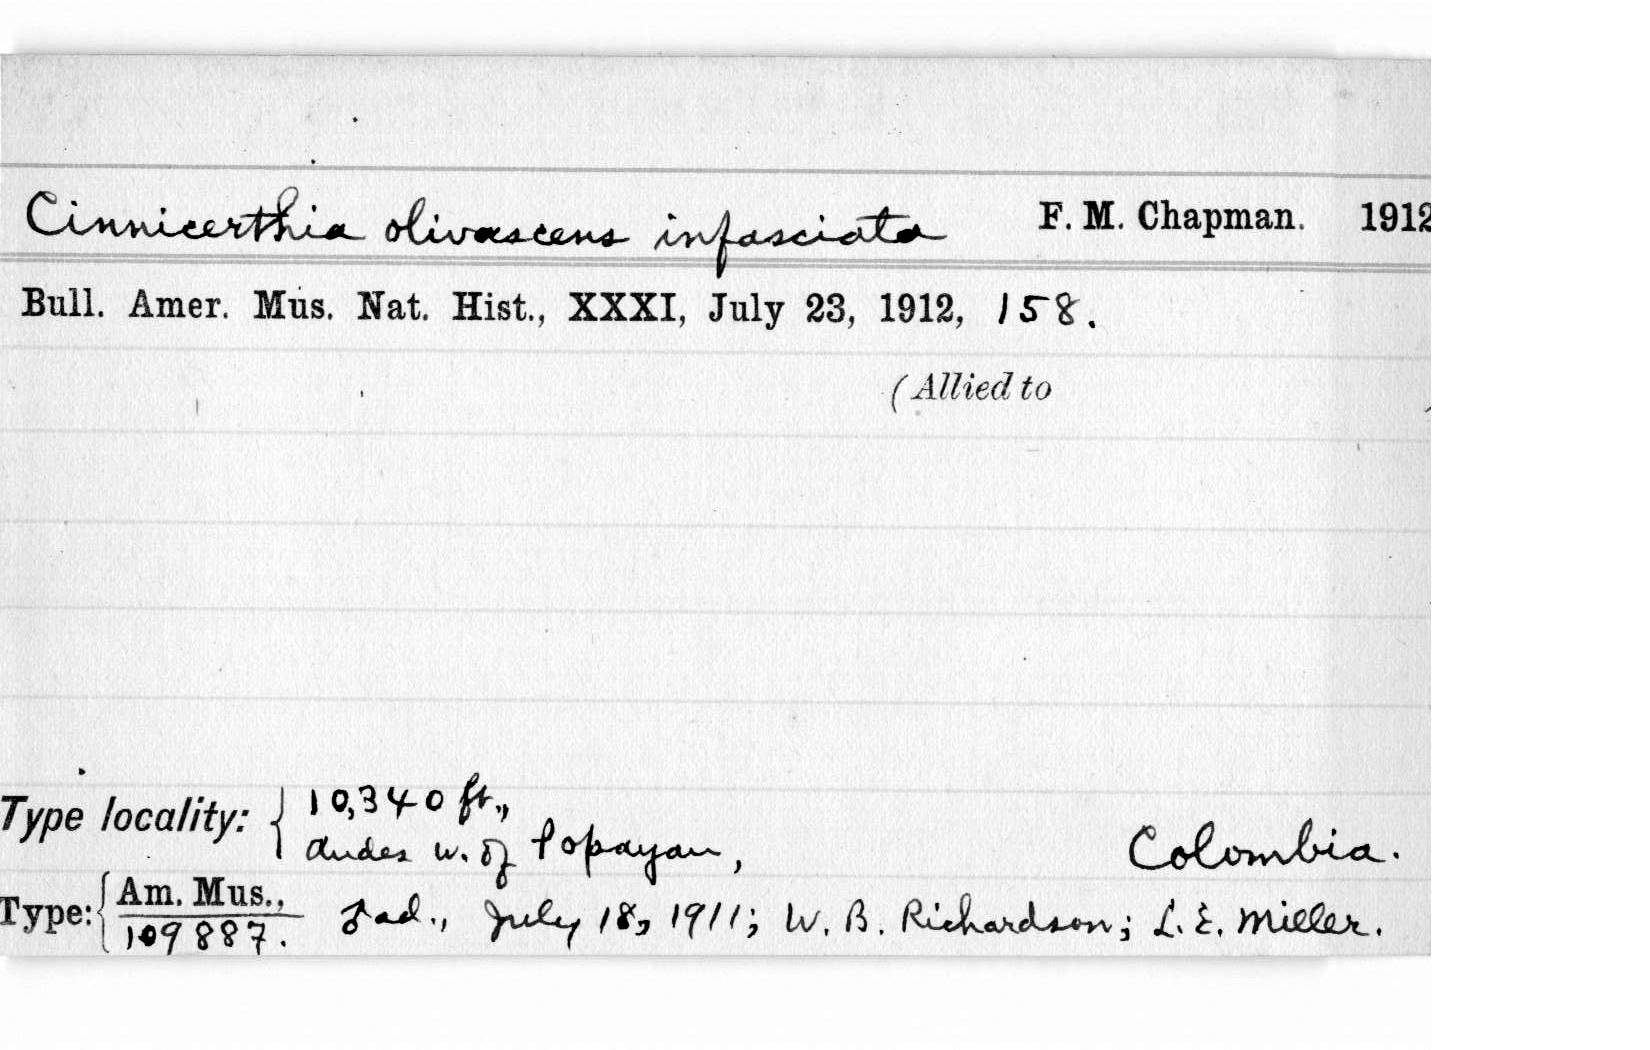 Cinnicerthia olivascens infasciata F. M. Chapman. 1912
Bull. Amer. Mus. Nat. Hist., XXXI, July 23, 1912, 158.
(Allied to
Type locality: { 10,340 ft.,
Andes w. of Popayan, Colombia.
Type: { Am. Mus.,
109887. ad., July 18, 1911; W. B. Richardson; L. E. Miller.